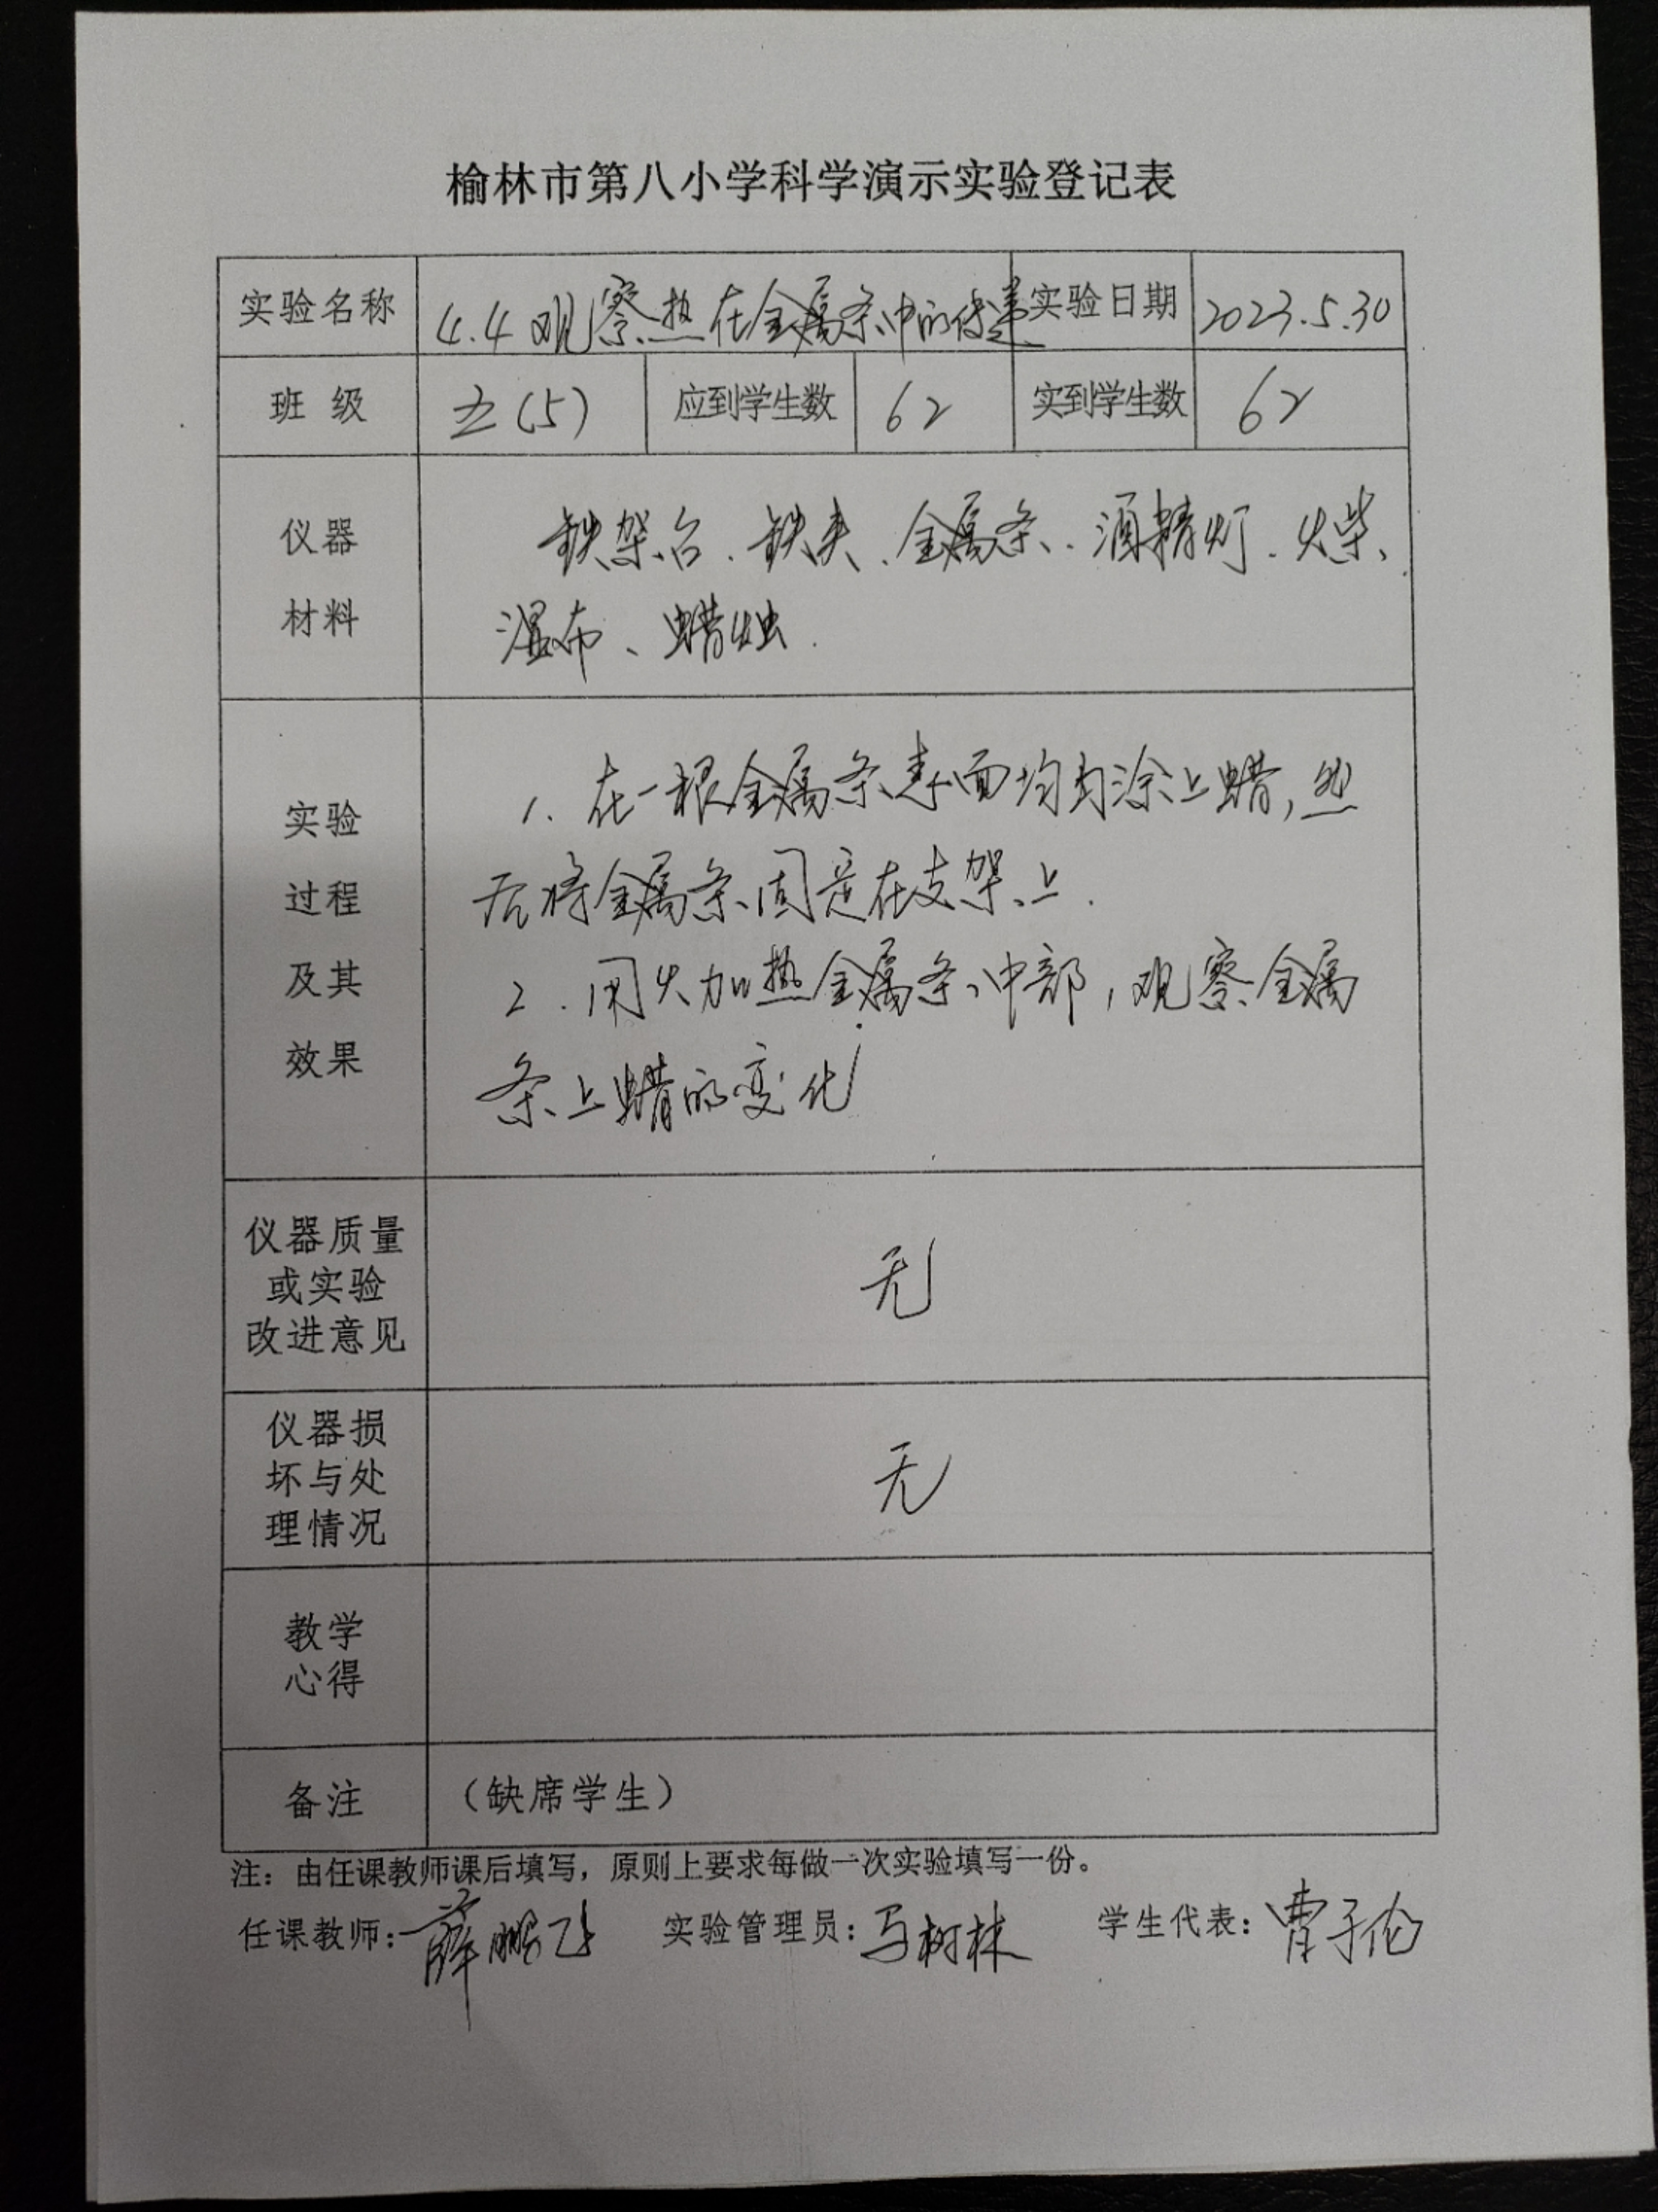 榆林市第八小学科学演示实验登记表
实验名称 4.4 观察热在金属条中的传递 实验日期 2023.5.30
班 级 五(5) 应到学生数 62 实到学生数 62
仪器
材料
铁架台、铁夹、金属条、酒精灯、火柴、
湿布、蜡烛.
实验
过程
及其
效果
1. 在一根金属条表面均匀涂上蜡,然
后将金属条固定在支架上.
2. 用火加热金属条中部,观察金属
条上蜡的变化
仪器质量
或实验
改进意见
无
仪器损
坏与处
理情况
无
教学
心得
备注 （缺席学生）
注：由任课教师课后填写，原则上要求每做一次实验填写一份。
任课教师: 薛鹏飞 实验管理员: 马树林 学生代表: 曹子伦